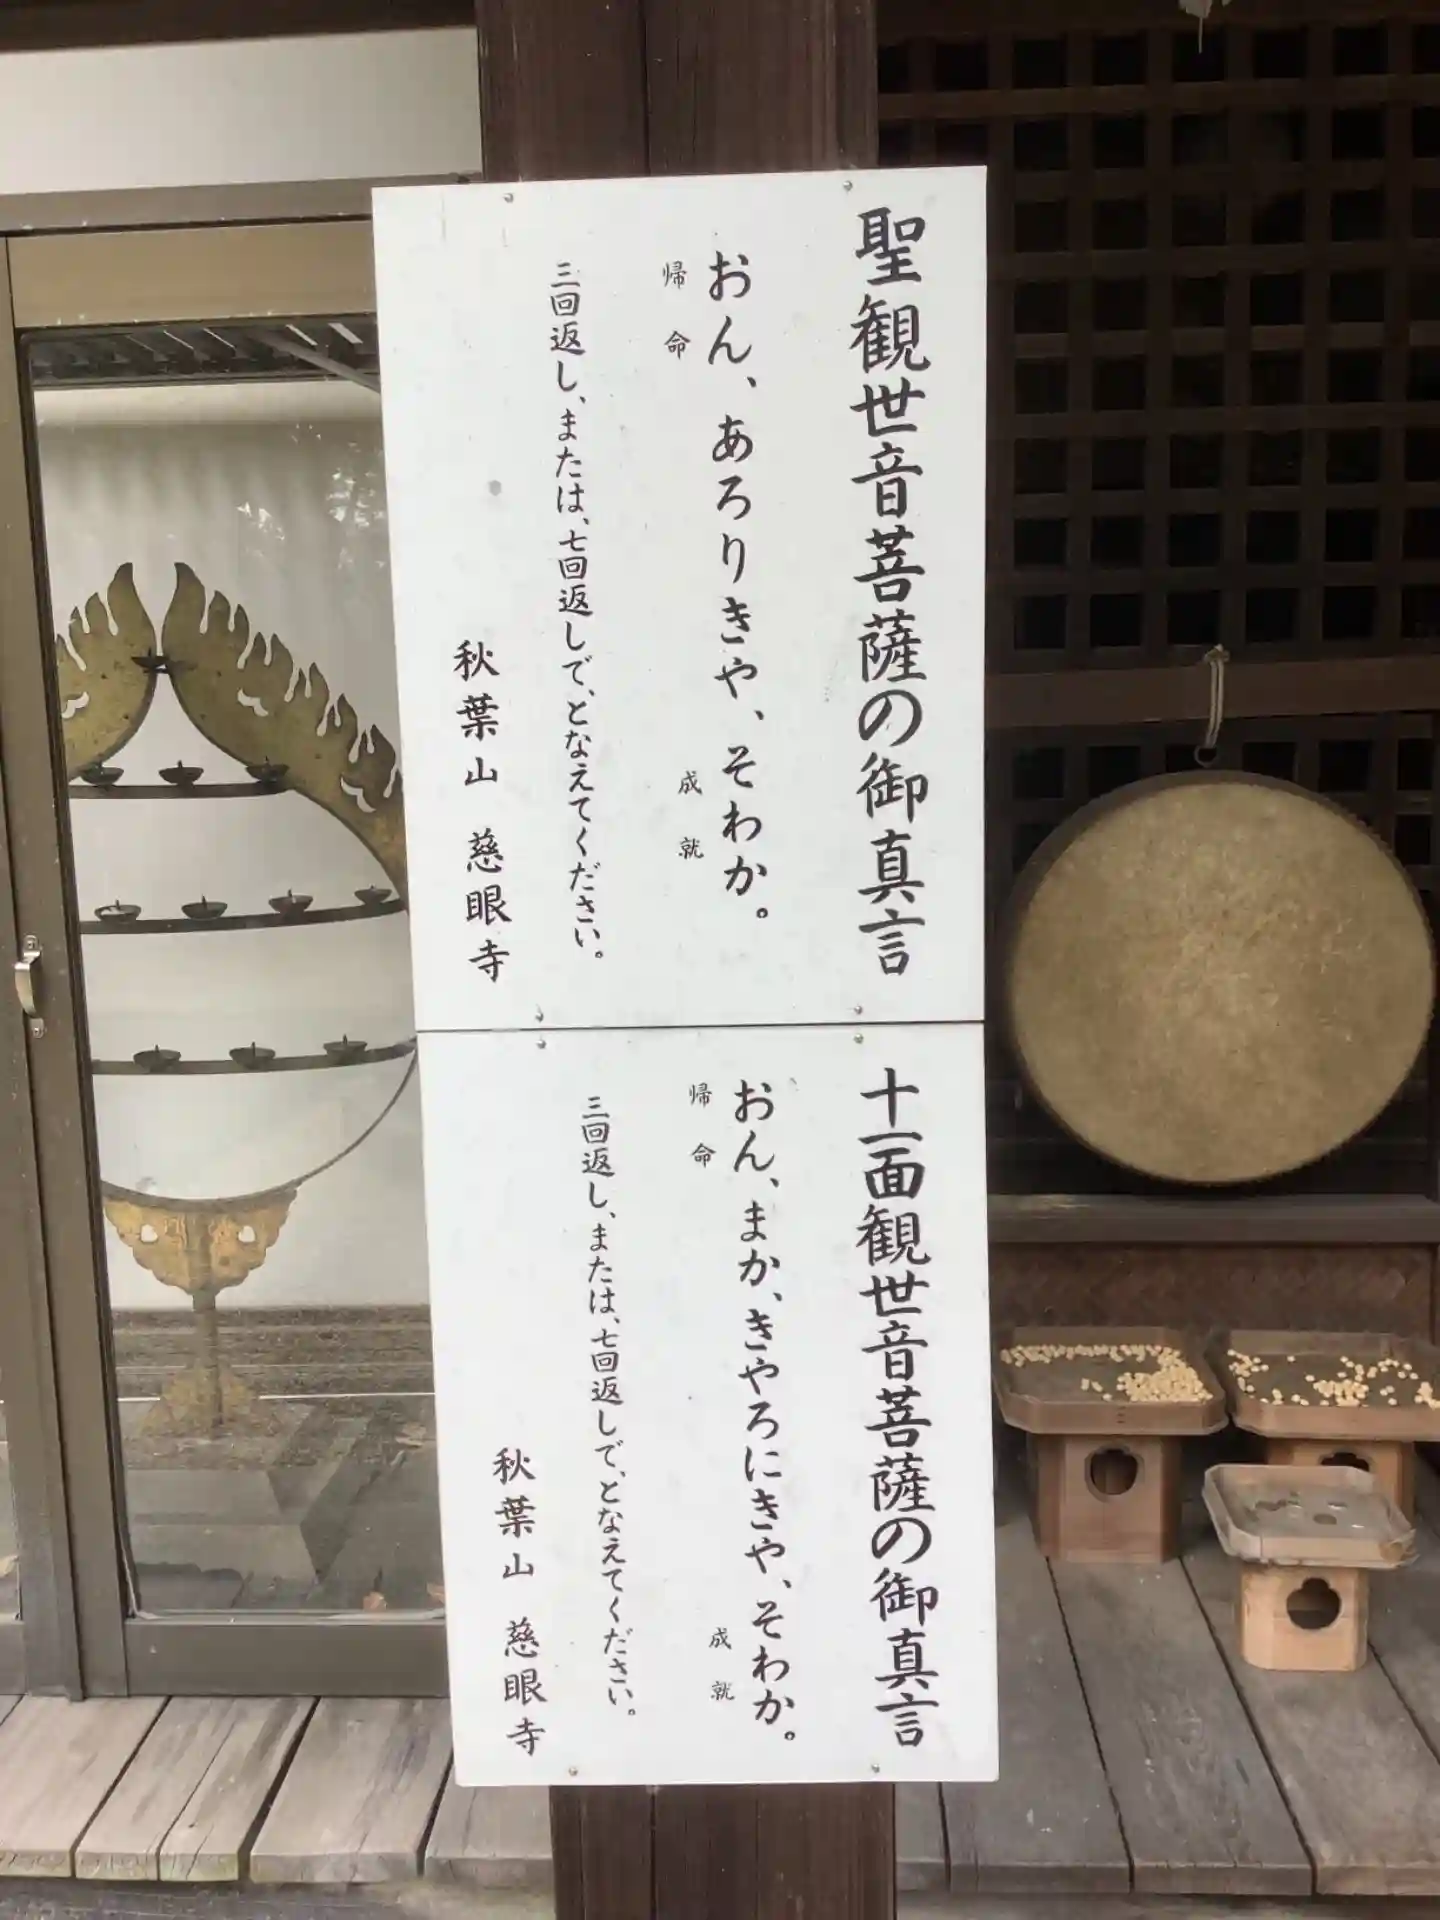 聖観世音菩薩の御真言
おん、あろりきや、そわか。
帰命 成就
三回返し、または、七回返しで、となえてください。
秋葉山 慈眼寺
十一面観世音菩薩の御真言
おん、まか、きやろにきや、そわか。
帰命 成就
三回返し、または、七回返しで、となえてください。
秋葉山 慈眼寺